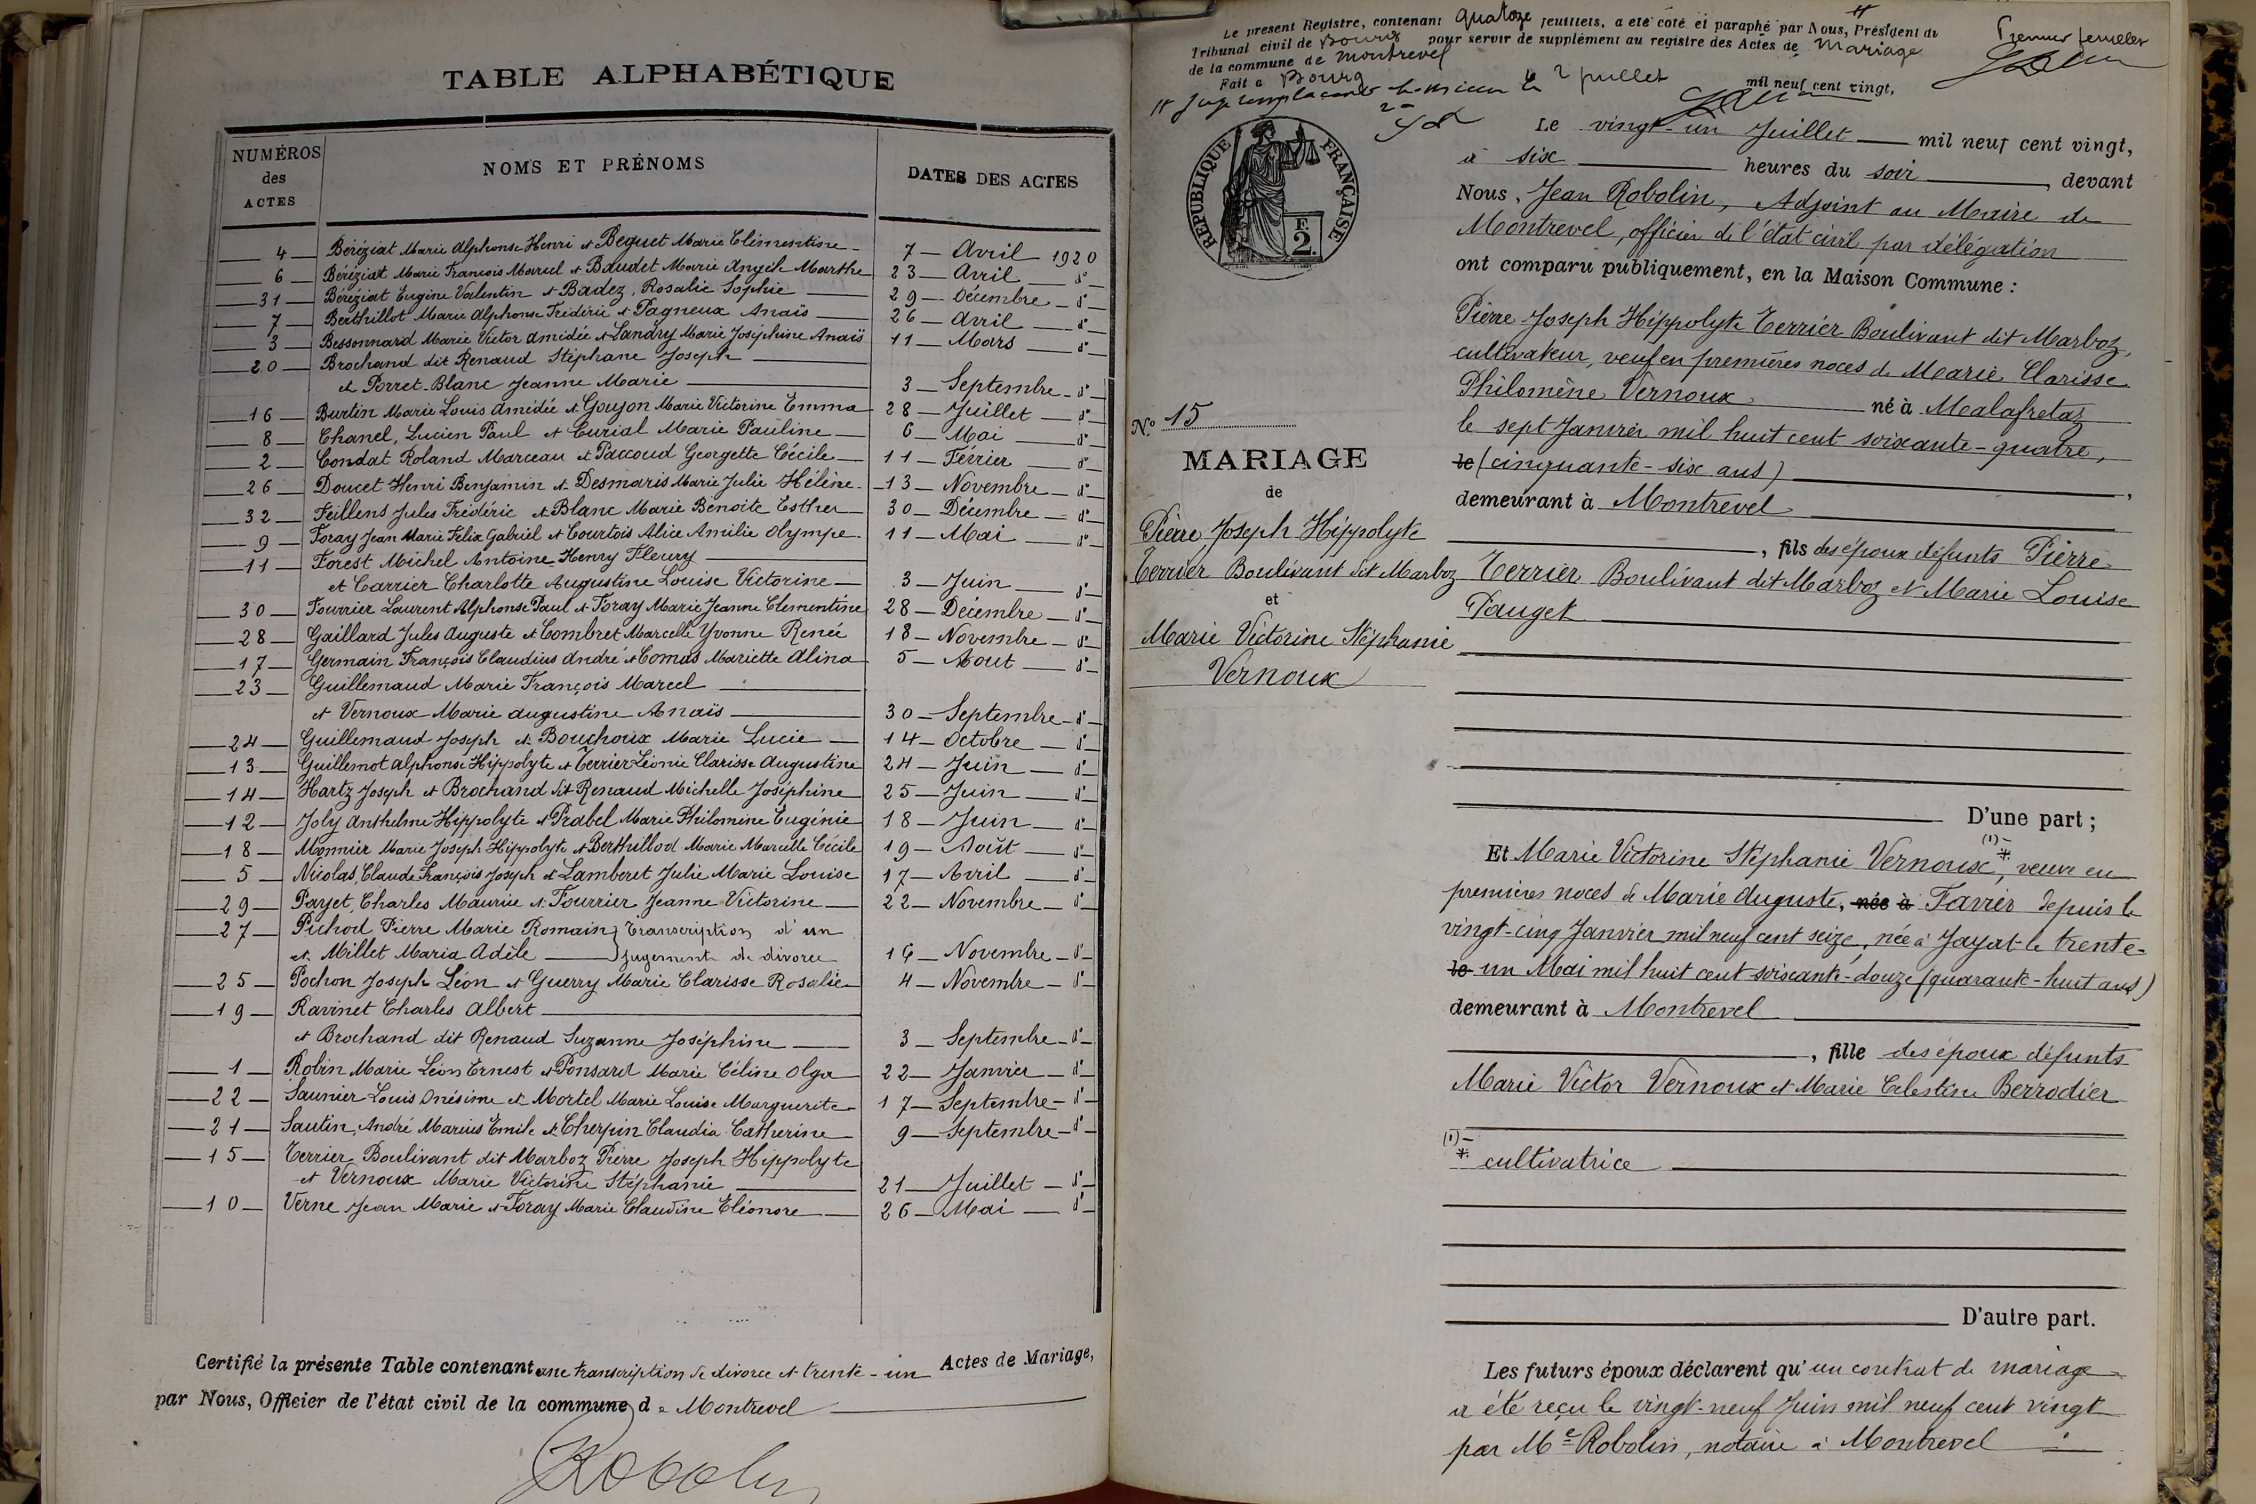 TABLE ALPHABÉTIQUE
NUMÉROS des ACTES
NOMS ET PRÉNOMS
DATES DES ACTES
4 Béréziat Marie Alphonse Henri et Beguet Marie Clémentine 7 Avril 1920
6 Béréziat Marie François Marcel et Baudet Marie Angèle Marthe 23 Avril d°
31 Béréziat Eugène Valentin et Badez, Rosalie Sophie 29 Décembre d°
7 Berthillot Marie Alphonse Frédéric et Pagneux Anaïs 26 Avril d°
3 Bessonnard Marie Victor Amédée et Landry Marie Joséphine Anaïs 11 Mars d°
20 Brochand dit Renaud Stéphane Joseph
et Porret-Blanc Jeanne Marie 3 Septembre d°
16 Burtin Marie Louis Amédée et Goujon Marie Victorine Emma 28 Juillet d°
8 Chanel, Lucien Paul et Curial Marie Pauline 6 Mai d°
2 Condat Roland Marceau et Paccoud Georgette Cécile 11 Février d°
26 Doucet Henri Benjamin et Desmaris Marie Julie Hélène 13 Novembre d°
32 Feillens Jules Frédéric et Blanc Marie Benoite Esther 30 Décembre d°
9 Foray Jean Marie Félix Gabriel et Courtois Alice Amélie Olympe 11 Mai d°
11 Forest Michel Antoine Henry Fleury
et Carrier Charlotte Augustine Louise Victorine 3 Juin d°
30 Fourrier Laurent Alphonse Paul et Foray Marie Jeanne Clementine 28 Décembre d°
28 Gaillard Jules Auguste et Combret Marcelle Yvonne Renée 18 Novembre d°
17 Germain François Claudius André et Comas Mariette Alina 5 Aout d°
23 Guillemaud Marie François Marcel
et Vernoux Marie Augustine Anaïs 30 Septembre d°
24 Guillemaud Joseph et Bouchoux Marie Lucie 14 Octobre d°
13 Guillemot Alphonse Hippolyte et Terrier Léonie Clarisse Augustine 24 Juin d°
14 Hartz Joseph et Brochand dit Renaud Michelle Joséphine 25 Juin d°
12 Joly Anthelme Hippolyte et Prabel Marie Philomine Eugénie 18 Juin d°
18 Monnier Marie Joseph Hippolyte et Berthillod Marie Marcelle Cécile 19 Août d°
5 Nicolas, Claude François Joseph et Lamberet Julie Marie Louise 17 Avril d°
29 Payet, Charles Maurice et Fourrier Jeanne Victorine 22 Novembre d°
27 Pichod Pierre Marie Romain } Transcription d'un
et Millet Maria Adèle } jugement de divorce 16 Novembre d°
25 Pochon Joseph Léon et Guerry Marie Clarisse Rosalie 4 Novembre d°
19 Ravinet Charles Albert
et Brochand dit Renaud Suzanne Joséphine 3 Septembre d°
1 Robin Marie Léon Ernest et Ponsard Marie Céline Olga 22 Janvier d°
22 Saunier Louis Onésime et Mortel Marie Louise Marguerite 17 Septembre d°
21 Sautin, André Marius Emile et Cherpin Claudia Catherine 9 Septembre d°
15 Terrier Boulivant dit Marboz Pierre Joseph Hippolyte
et Vernoux Marie Victorine Stéphanie 21 Juillet d°
10 Verne Jean Marie et Foray Marie Claudine Eléonore 26 Mai d°
Certifié la présente Table contenant une transcription de divorce et trente-un Actes de Mariage,
par Nous, Officier de l'état civil de la commune de Montrevel
Robolin
Le présent Registre, contenant quatoze feuillets, a été coté et paraphé par Nous, Président du
Tribunal civil de Bourg pour servir de supplément au registre des Actes de Mariage
de la commune de Montrevel
Fait à Bourg le 2 juillet mil neuf cent vingt.
Premier feuillet
RÉPUBLIQUE FRANÇAISE
2 F.
N° 15
MARIAGE
de
Pierre Joseph Hippolyte
Terrier Boulivant dit Marboz
et
Marie Victorine Stéphanie
Vernoux
Le vingt-un Juillet mil neuf cent vingt,
à six heures du soir, devant
Nous, Jean Robolin, Adjoint au Maire de
Montrevel, officier de l'état civil par délégation
ont comparu publiquement, en la Maison Commune :
Pierre Joseph Hippolyte Terrier Boulivant dit Marboz,
cultivateur, veuf en premières noces de Marie Clarisse
Philomène Vernoux né à Malafretaz
le sept Janvier mil huit cent soixante-quatre,
le (cinquante-six ans),
demeurant à Montrevel
, fils des époux défunts Pierre
Terrier Boulivant dit Marboz et Marie Louise
Pauget
D'une part ;
Et Marie Victorine Stéphanie Vernoux (1)*, veuve en
premières noces de Marie Auguste, née à Favier depuis le
vingt-cinq Janvier mil neuf cent seize, née à Jayat le trente-
le un Mai mil huit cent soixante-douze (quarante-huit ans)
demeurant à Montrevel
, fille des époux défunts
Marie Victor Vernoux et Marie Célestine Berrodier
(1)* cultivatrice
D'autre part.
Les futurs époux déclarent qu'un contrat de mariage
a été reçu le vingt-neuf Juin mil neuf cent vingt
par Me Robolin, notaire à Montrevel